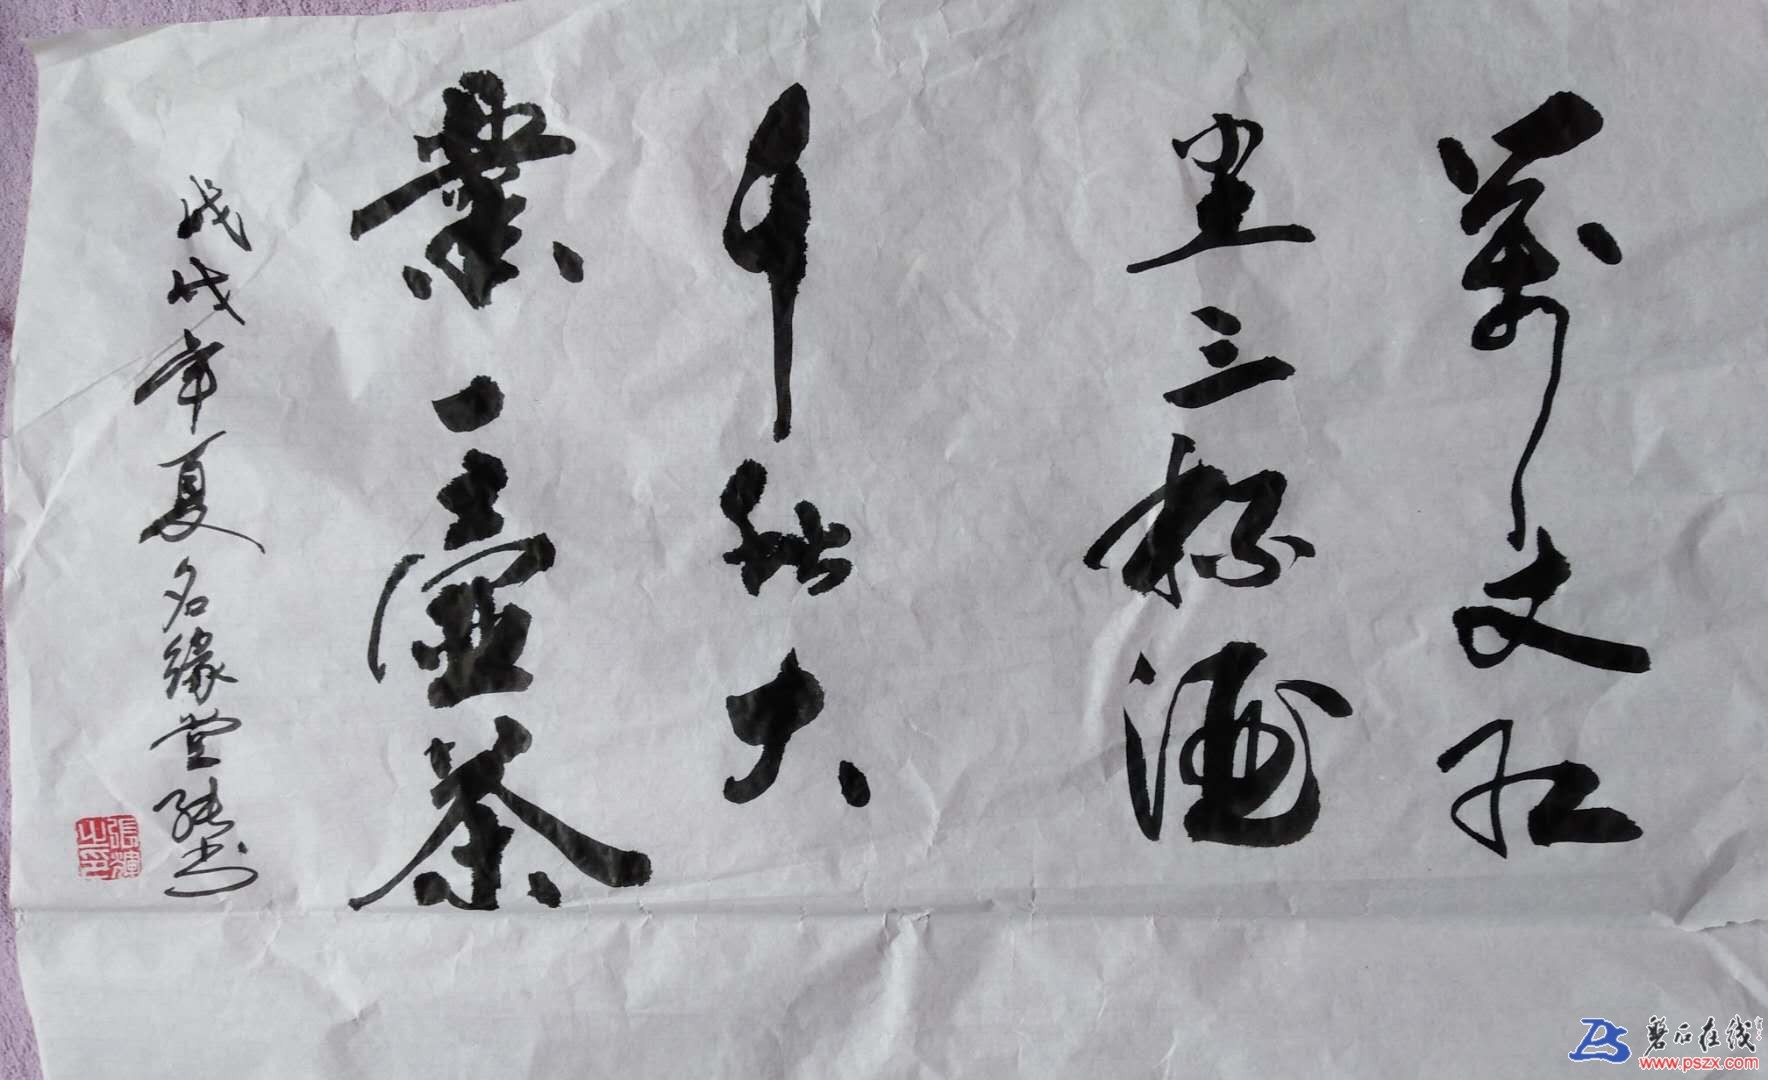 萬丈红
里三杯酒
千秋大
業一壺茶
戊戌年夏名緣堂張書
張輝之印
磐石在线
www.pszx.com